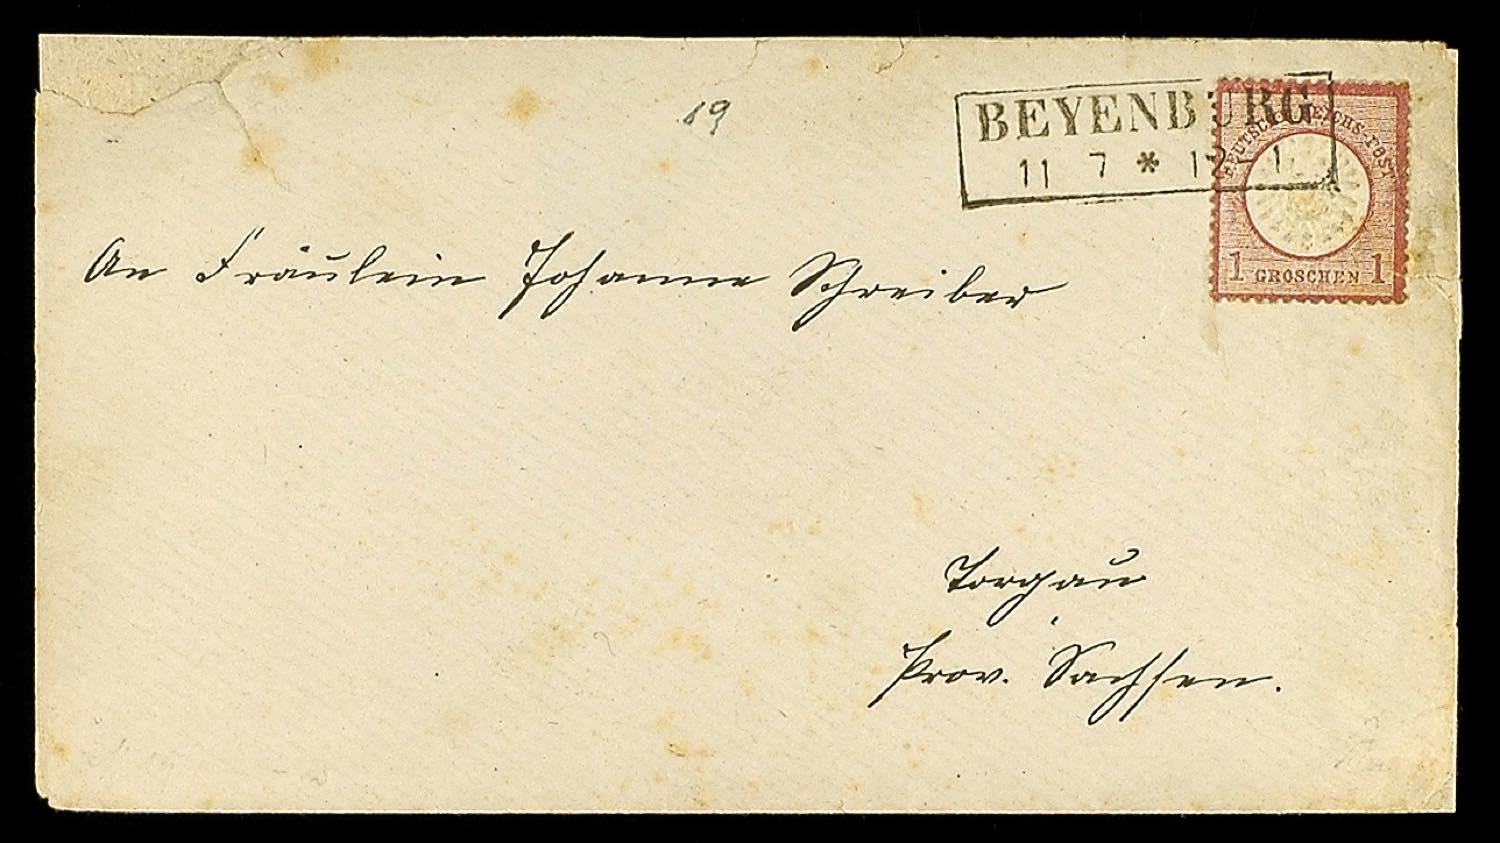 19
BEYENBURG
11 7 * 12-1
DEUTSCHE REICHS-POST
1 GROSCHEN 1
An Fräulein Johanne Schreiber
Torgau
Prov. Sachsen.